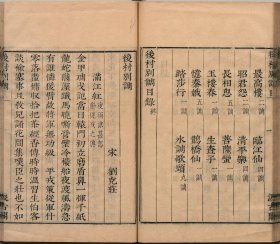 最高樓 臨江仙
昭君怨 清平樂
長相思 菩薩蠻
玉樓春 生查子
憶秦娥 鵲橋仙
踏莎行 水調歌頭
後村別調目錄
後村別調
宋 劉克莊
滿江紅
金甲琱戈記當日轅門初立磨盾鼻一揮千紙
龍蛇猶濕鐵馬曉嘶營壁冷樓船夜渡風濤急
有誰憐猿臂故將軍無功級 平戎策從軍什
零落盡慵收拾把茶經香傳時時溫習生怕客
談榆塞事且教兒誦花間集嘆臣之壯也不如